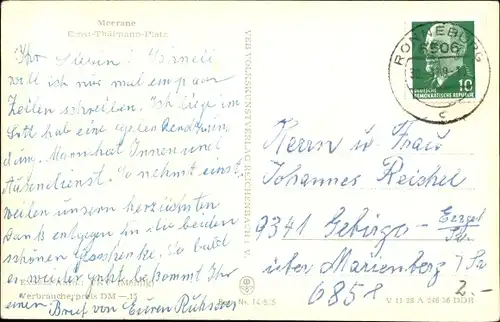 Meerane
Ernst-Thälmann-Platz
Ihr Lieben!
will ich nur mal ein paar
Zeilen schreiben. Ich liege im
Bett hab eine
dum. Mann hat Innen und
Außendienst. So nehmt einst
weilen unsern herzlichsten
Dank entgegen für die beiden
schönen Geschenke. So bald
er wieder geht bekommt Ihr
einen Brief von Euren
Verbraucherpreis DM —,15
VEB VOLKSKUNSTVERLAG REICHENBACH I. V.
RONNEBURG
6506
c
DEUTSCHE
DEMOKRATISCHE REPUBLIK
10
Herrn u Frau
Johannes Reichel
9341 Gebirge-
über Marienberg / Sa
6858
2.-
DDR